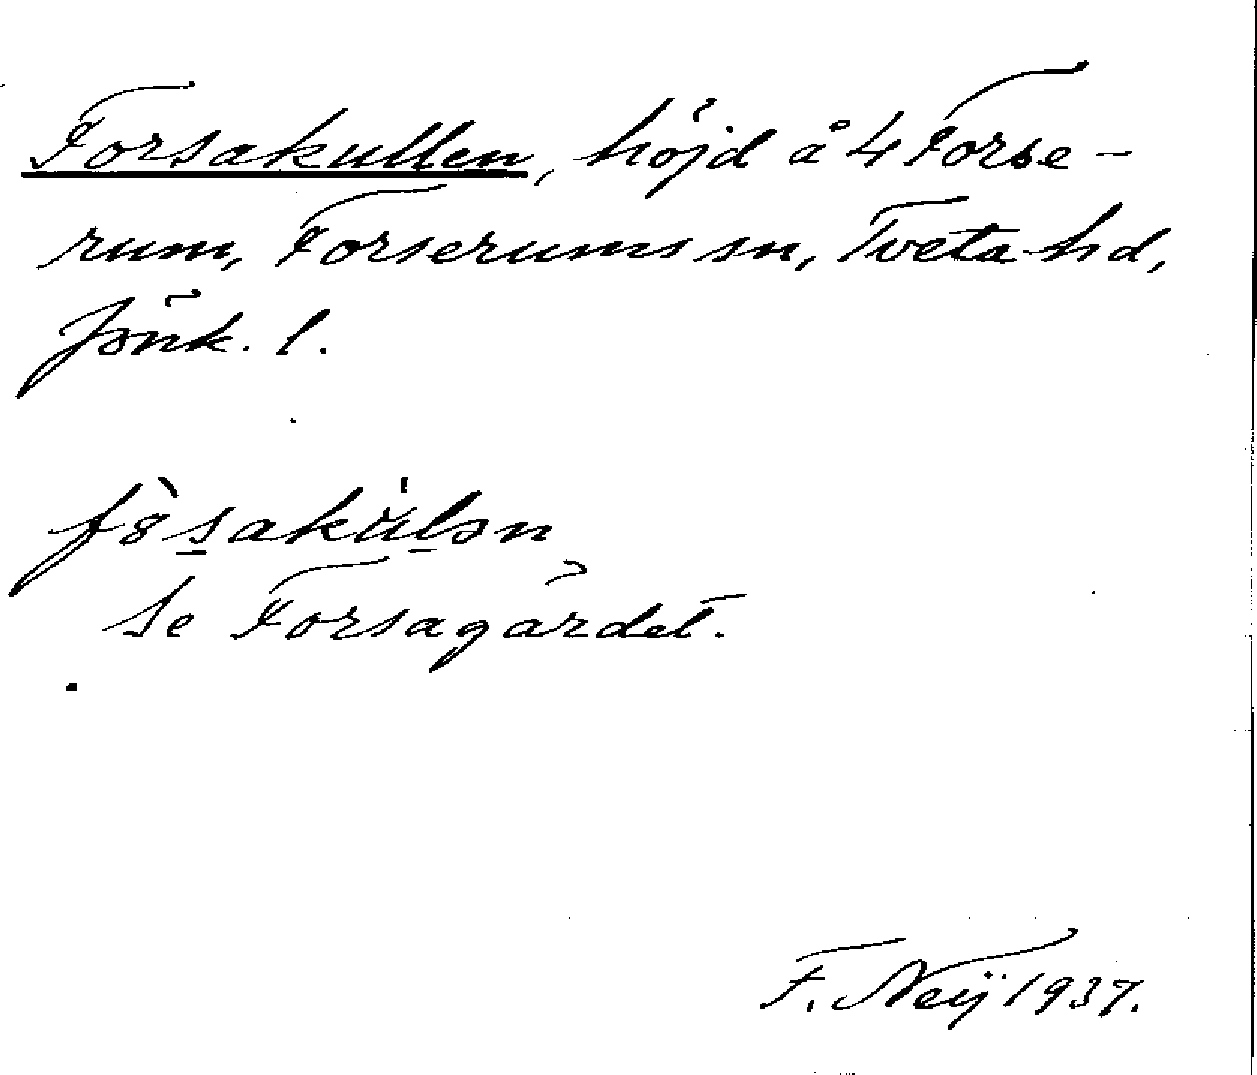 Forsakullen, höjd å 4 Forse-
rum, Forserums sn, Tveta hd,
Jönk. l.
se Forsagärdet.
F. Neij 1937.